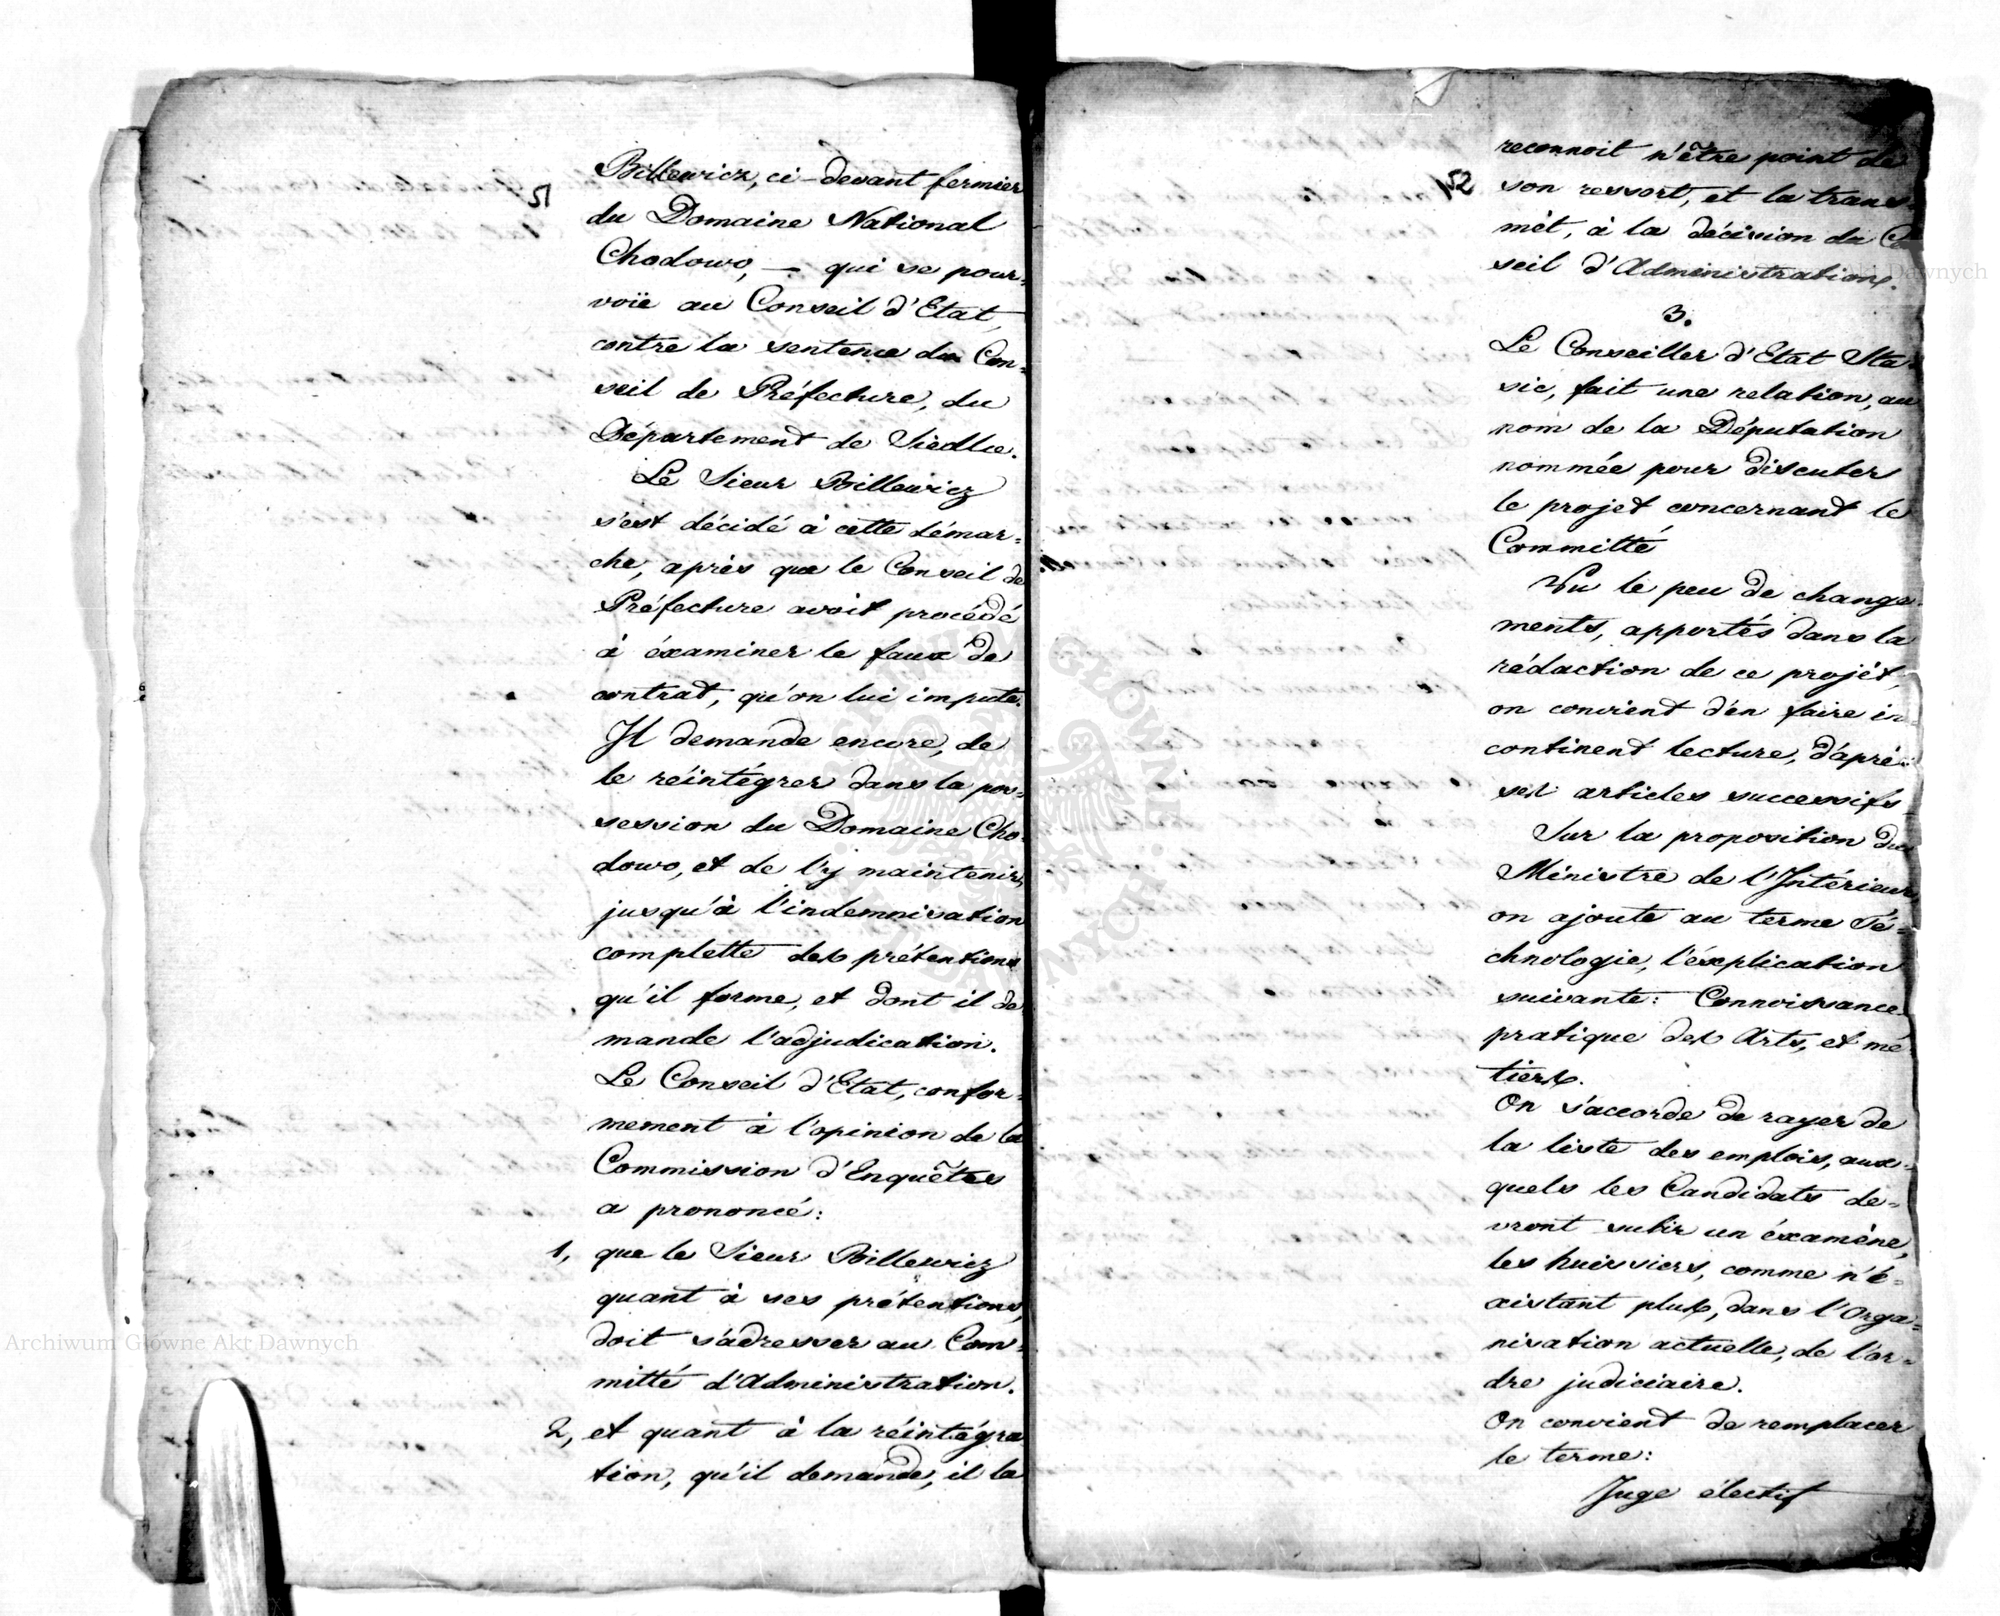 51
Billewicz, ci-devant fermier
du Domaine National
Chodowo, — qui se pour-
voië au Conseil d'Etat,
contre la sentence du Con-
seil de Préfecture, du
Département de Siedlce.
Le Sieur Billewicz
s'est décidé à cette démar-
che, après que le Conseil de
Préfecture avoit procédé
à éxaminer le faux de
contrat, qu'on lui impute.
Il demande encore, de
le réintégrer dans la pos-
session du Domaine Cho-
dowo, et de l'y maintenir,
jusqu'à l'indemnisation
complette des prétentions
qu'il forme, et dont il de
mande l'adjudication.
Le Conseil d'Etat, confor-
mement à l'opinion de la
Commission d'Enquêtes
a prononcé:
1, que le Sieur Billewicz
quant à ses prétentions,
doit s'adresser au Com-
mitté d'Administration.
2, et quant à la réintégra
tion, qu'il demande, il la
52
reconnoit n'être point de
son ressort, et la trans-
mèt, à la décision du Co
seil d'Administration.
3.
Le Conseiller d'Etat Sta-
sic, fait une relation, au
nom de la Députation
nommée pour discuter
le projet concernant le
Committé
Vu le peu de change-
ments, apportés dans la
rédaction de ce projèt,
on convient d'en faire in-
continent lecture, d'après
ses articles successifs
Sur la proposition du
Ministre de l'Intérieur
on ajoute au terme Té-
chnologie, l'éxplication
suivante: Connoissance
pratique des Arts, et mé
tiers.
On s'accorde de rayer de
la liste des emplois, aux-
quels les Candidats de-
vront subir un éxamène,
les huissiers, comme n'é-
xistant plus, dans l'Orga-
nisation actuelle, de l'or-
dre judiciaire.
On convient de remplacer
le terme:
Juge électif
Archiwum Główne Akt Dawnych